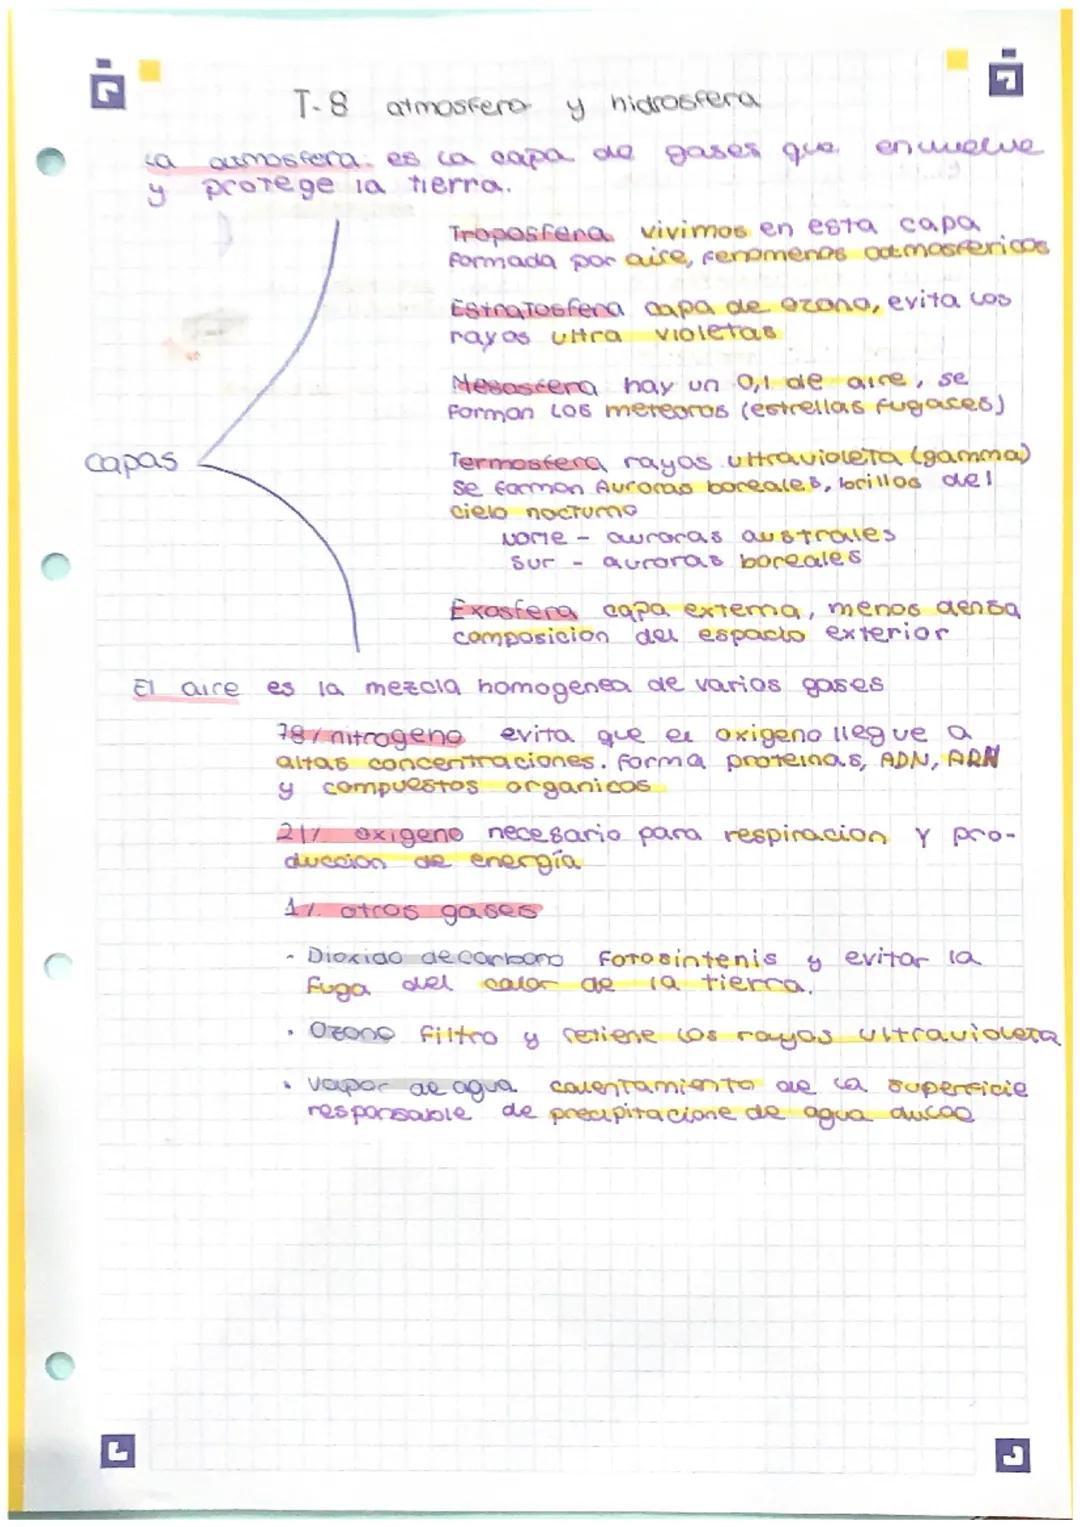 T-8 atmosfera y hidrosfera
La atmosfera: es la capa de gases que envuelve
y protege la tierra.
Troposfera vivimos en esta capa
formada por aire, fenomenos adtmosfericos
Estratosfera capa de ozono, evita los
rayos ultra violetas
Mesosfera hay un 0,1 de aire, se
forman los meteoros (estrellas fugases)
capas
Termosfera rayos ultravioleta (gamma)
se forman Auroras boreales, brillos del
cielo nocturno
Norte - auroras australes
Sur - auroras boreales
Exosfera capa externa, menos densa
composicion del espacio exterior
El aire es la mezcla homogenea de varios gases
78% nitrogeno evita que el oxigeno llegue a
altas concentraciones. forma proteinas, ADN, ARN
y compuestos organicos
21% oxigeno necesario para respiracion y pro-
duccion de energía
1% otros gases
- Dioxido de carbono Fotosintenis y evitar la
fuga del calor de la tierra.
• Ozono filtro y retiene los rayos ultravioleta
• Vapor de agua calentamiento de la superficie
responsable de precipitacione de agua dulce